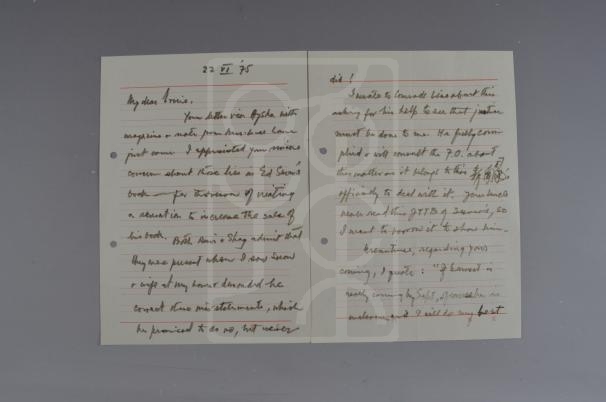 22 VI '75
My dear
Your letter via Aysha with
magazine & note from
just come. I appreciated your
concern about those lies in Ed Snow's
book — for the reason of creating
a sensation to increase the sale of
his book. Both and Shag admit that
they were present when I saw Snow
& wife at my house & demanded he
correct those mis-statements, which
he promised to do so, but never
did!
I wrote to Comrade about this
asking for his help to see that justice
must be done to me. He fully com
plied & will consult the F.O. about
this matter as it belongs to this
officially to deal with it. Your
never read this of Snow's, so
I want to borrow it to show him.
Meantime, regarding your
coming, I quote: "If Earnest is
really coming by Sept, of course he is
welcome, and I will do my best